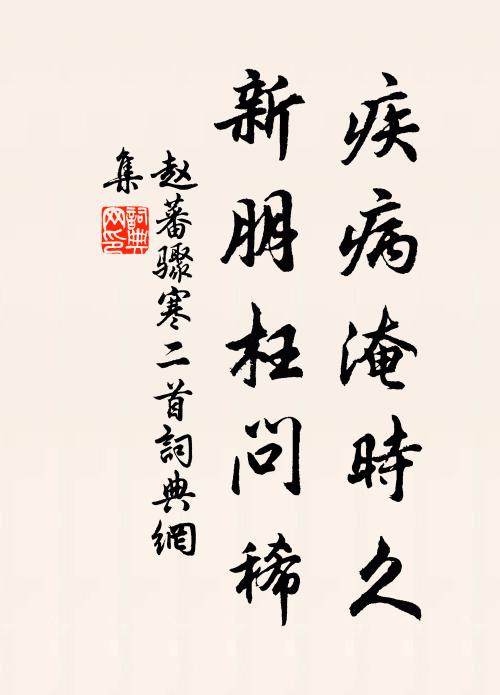 疾病淹時久
新朋枉問稀
赵蕃驟寒二首詞典網
集
詞典
网印